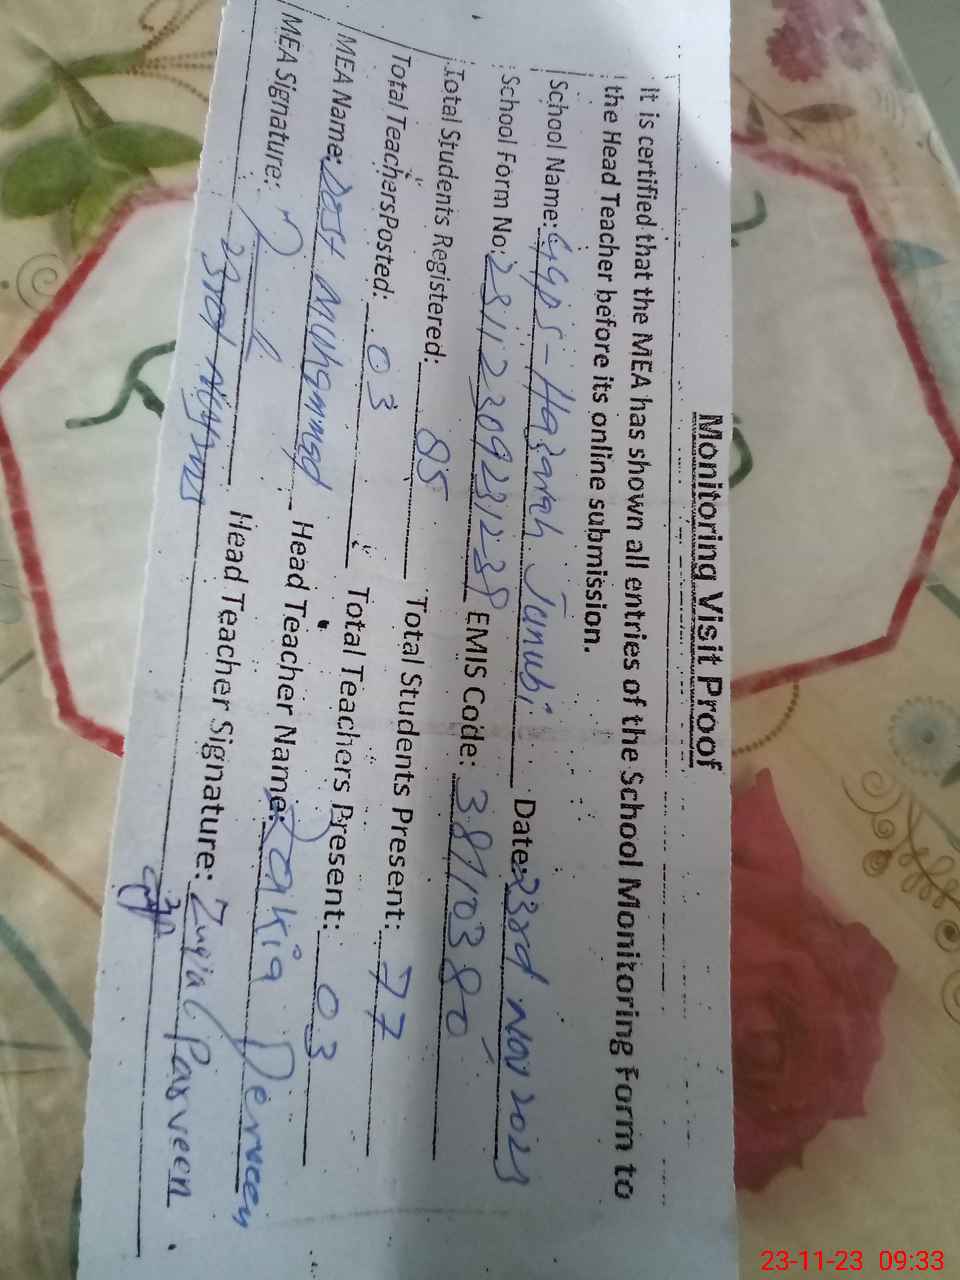 Monitoring Visit Proof
It is certified that the MEA has shown all entries of the School Monitoring Form to
the Head Teacher before its online submission.
School Name: GGPS-Hazarah Janubi Date: 23rd Nov 2023
School Form No: EMIS Code: 38110380
Total Students Registered: 85 Total Students Present: 77
Total TeachersPosted: 03 Total Teachers Present: 03
MEA Name: Dost Muhammad Head Teacher Name: Perveen
MEA Signature: Head Teacher Signature: Parveen
23rd
23-11-23 09:33